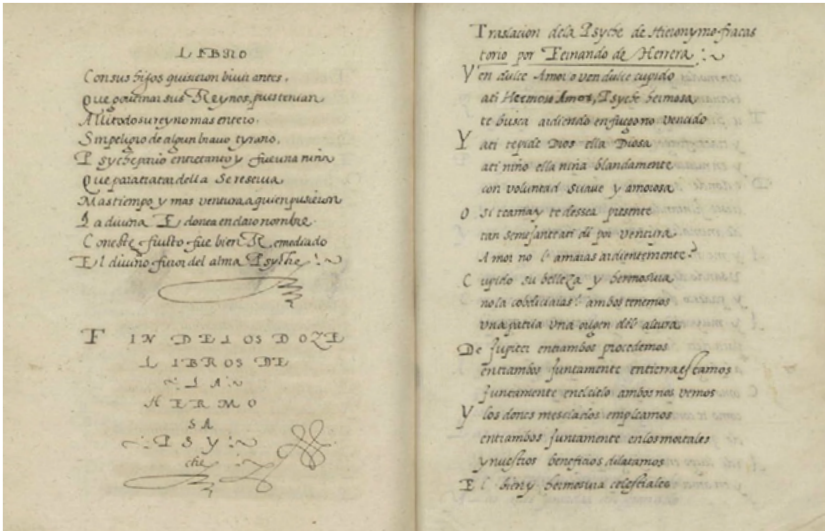 LIBRO
Con sus hijos quisieron bivir antes.
Que governar sus Reynos, pues tenian
Alli todo su reyno mas entero.
Sin peligro de algun bravo tyrano.
Psyche pario entretanto y fue una niña
Que para tratar della Se reserva
Mas tiempo y mas ventura, a quien pusieron
La divina Edonea en claro nombre.
Con este fructo fue bien Remediado
El divino furor del alma Psyche
FIN DE LOS DOZE
LIBROS DE
LA
HERMO
SA
PSY
che
Traslacion de la Psyche de Hieronymo fracas
torio por Fernando de Herrera
Ven dulce Amor o ven dulce cupido
a ti Hermoso Amor, Psyche hermosa
te busca ardiendo en fuego no vencido
Y a ti te pide Dios ella Diosa
a ti niño ella niña blandamente
con voluntad suave y amorosa
O si te ama y te dessea presente
tan semejante a ti di por ventura
Amor no l' amaras ardientemente?
Cupido su belleza y hermosura
no la cobdiciaras? ambos tenemos
una patria una origen del altura.
De Jupiter entrambos procedemos
entrambos juntamente en tierra estamos
juntamente en el cielo ambos nos vemos
Y los dones mesclados empleamos
entrambos juntamente en los mortales
y nuestros beneficios dilatamos
El bien y hermosura celestiales